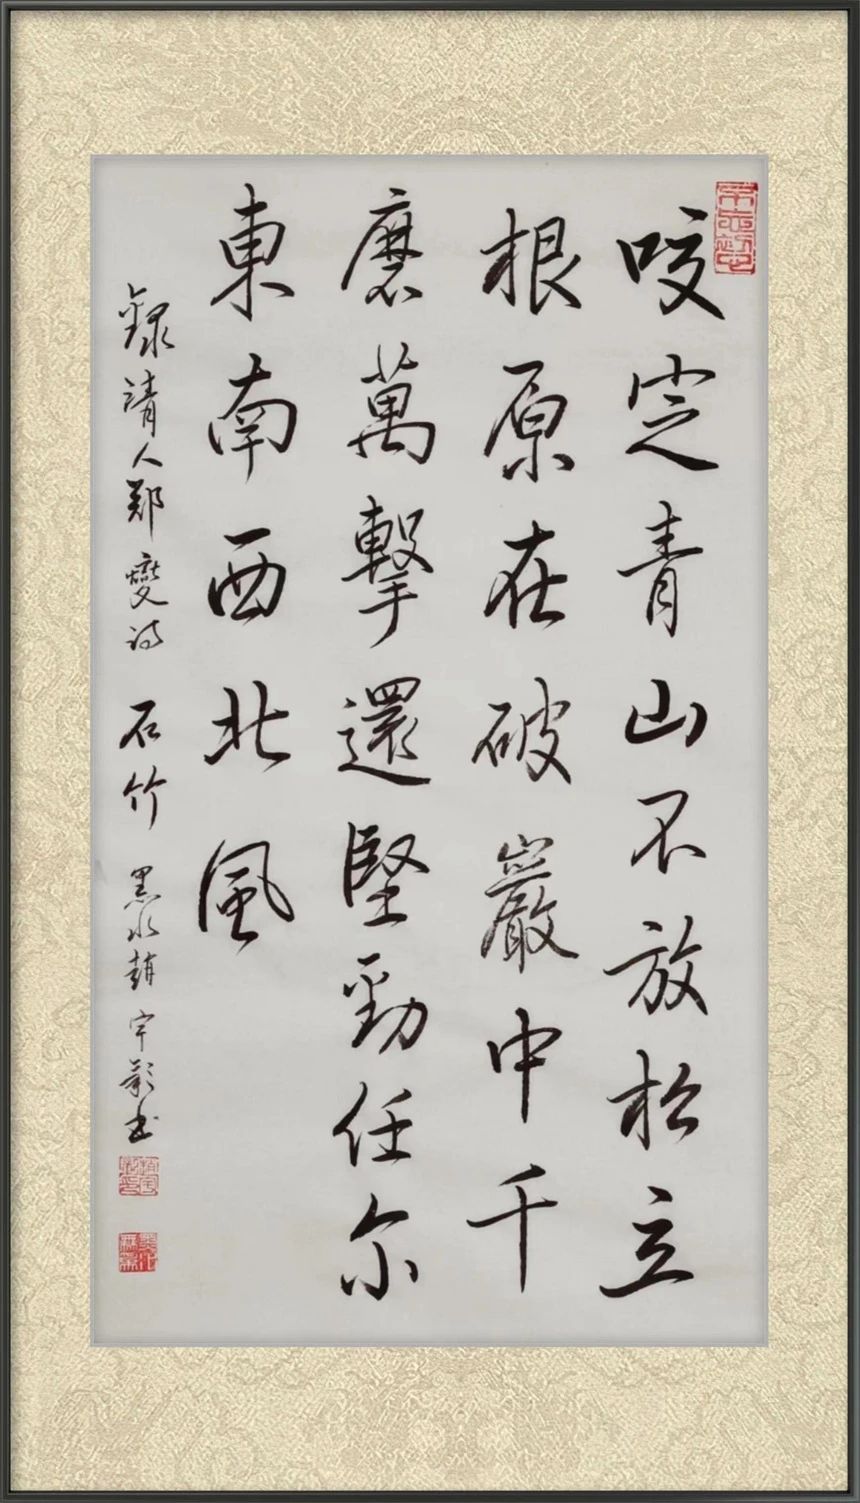 咬定青山不放松立
根原在破巖中千
磨萬擊還堅勁任尔
東南西北風
錄清人鄭燮詩 石竹 黑水趙宇书